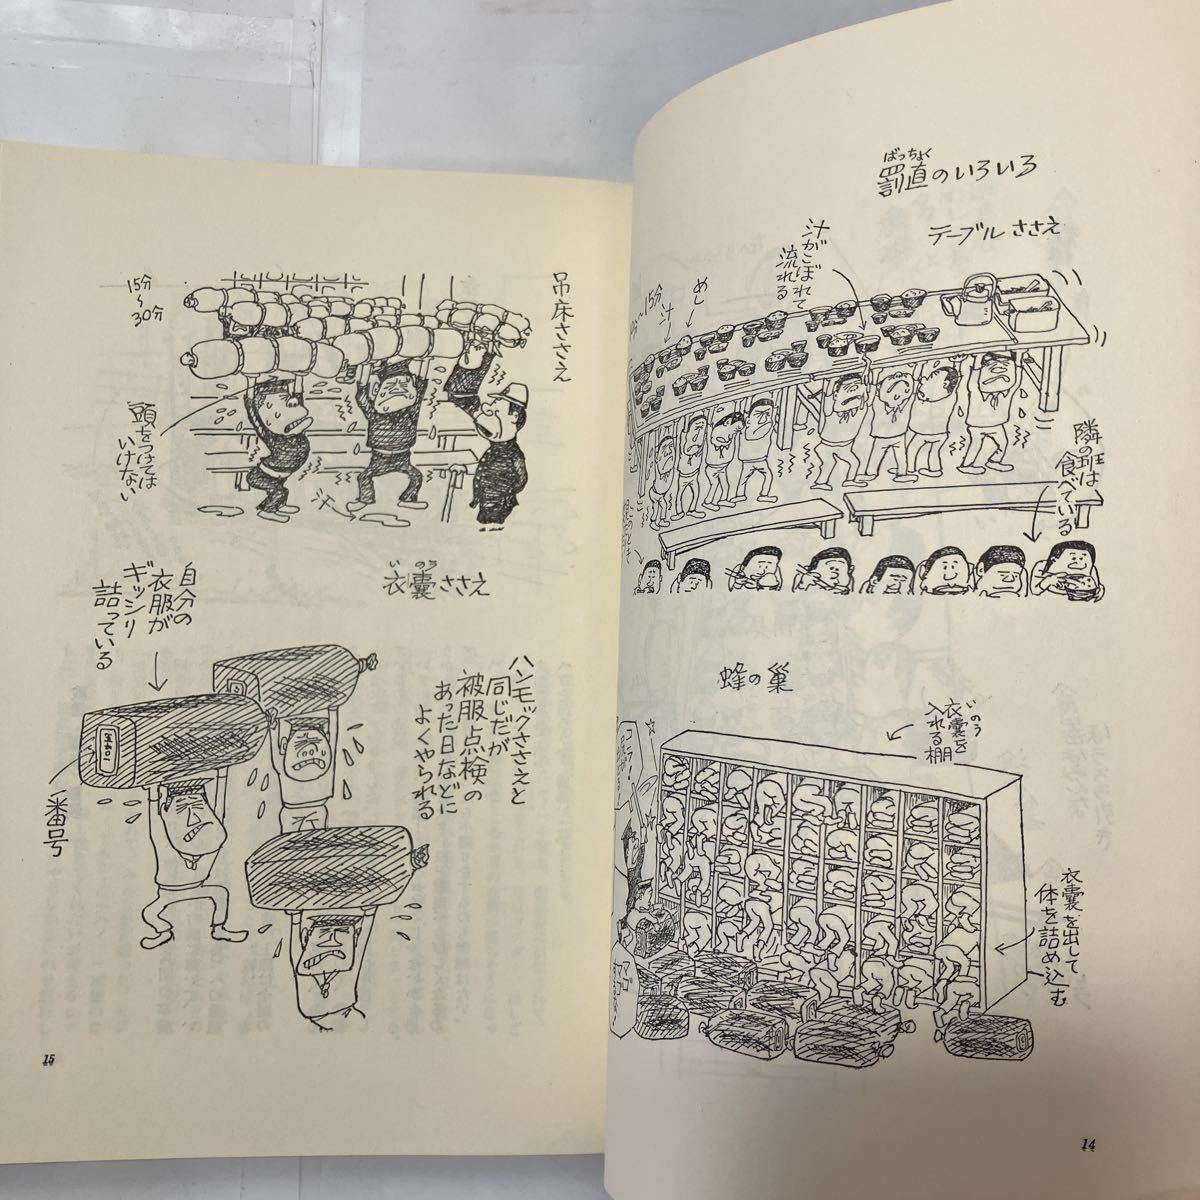 ばっちょく
罰直のいろいろ
テーブルささえ
汁がこぼれて
流れる
めし
汁
15分
隣の班は
食べている
蜂の巣
いのう
衣嚢を
入れる棚
衣嚢を出して
体を詰め込む
14
吊床ささえ
15分
〜
30分
頭をつけては
いけない
汗
いのう
衣嚢ささえ
自分の
衣服が
ギッシリ
詰っている
番号
ハンモックささえと
同じだが
被服点検の
あった日などに
よくやられる
15